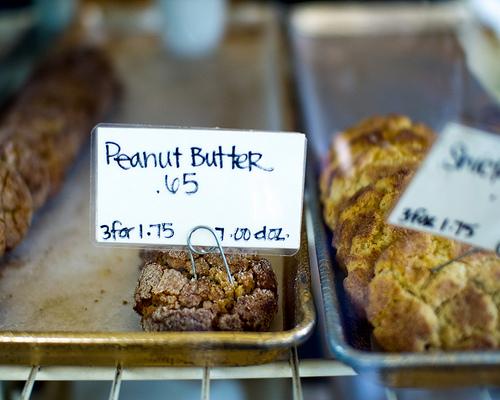 Peanut Butter
.65
3 for 1.75 7.00 doz.
3 for 1.75